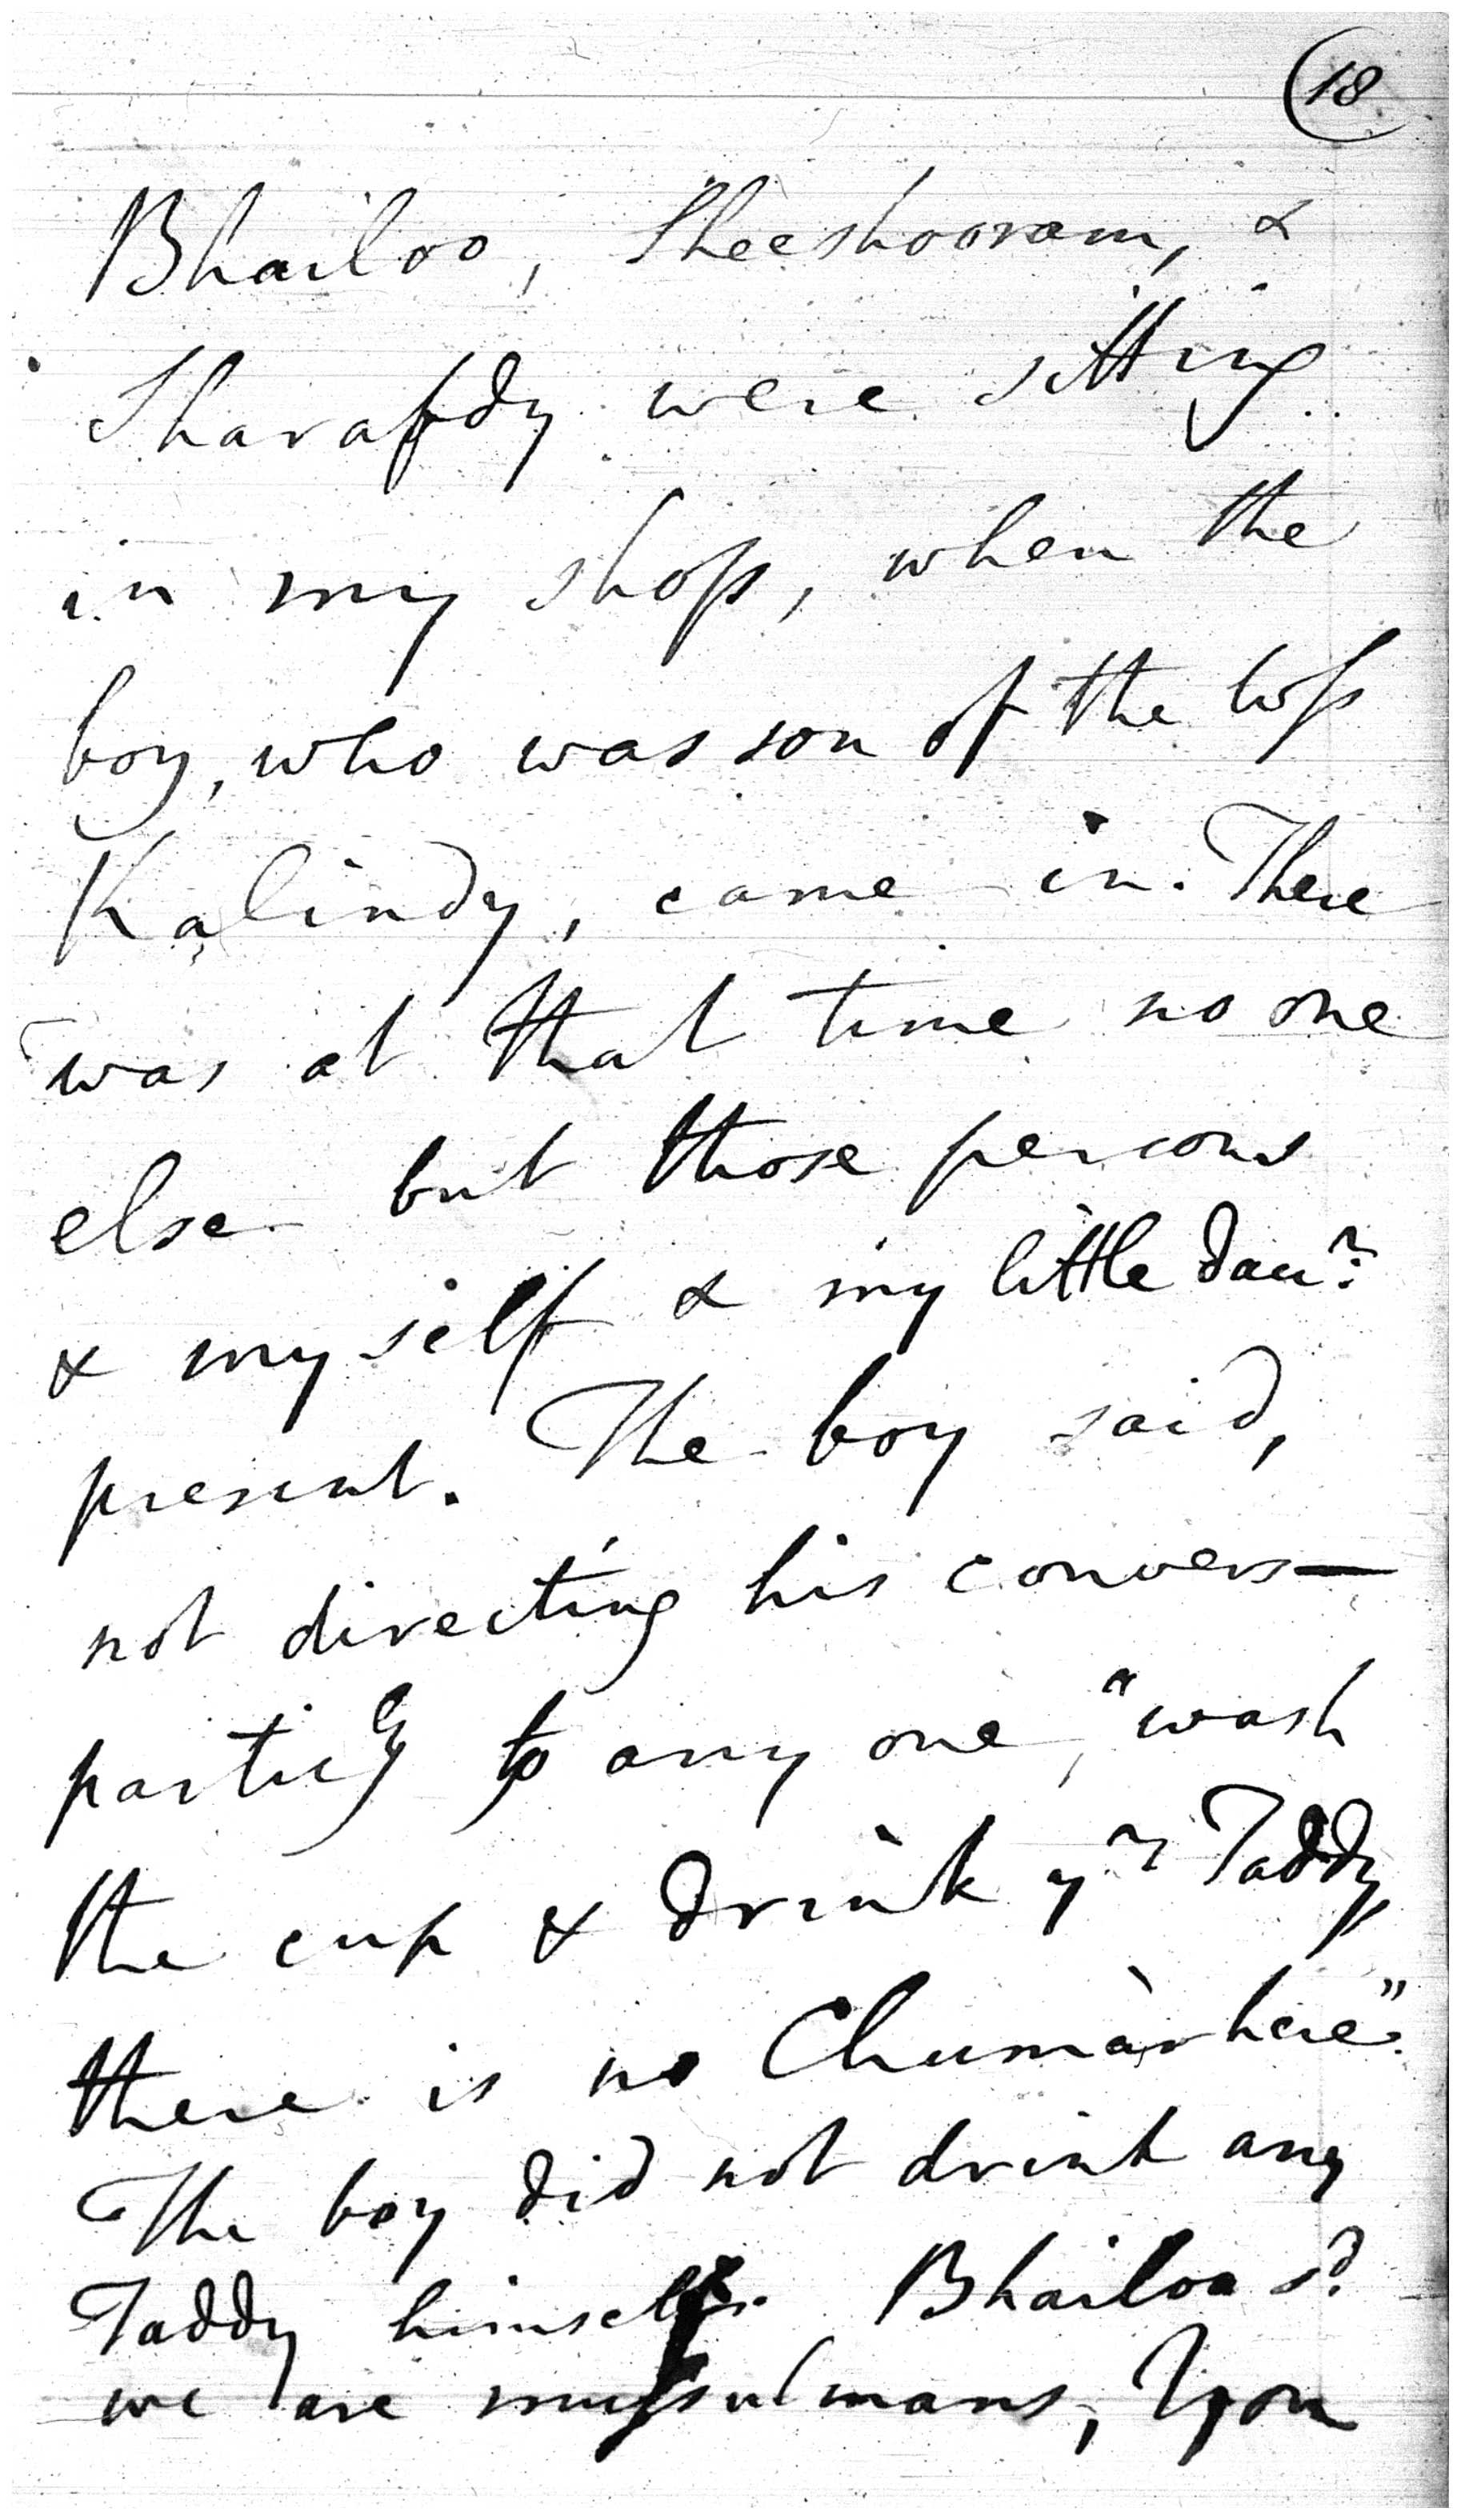 18
Bhailoo, Sheeshooram, &
Sharafdy were sitting
in my shop, when the
boy, who was son of the
Kalindy, came in. There
was at that time no one
else but those persons
& myself & my little daur.
present. The boy said,
not directing his convers—
particly to any one, "wash
the cup & drink yr Taddy
there is no Chumàr here".
The boy did not drink any
Taddy himself. Bhailoo sd.
we are mussulmans, & you